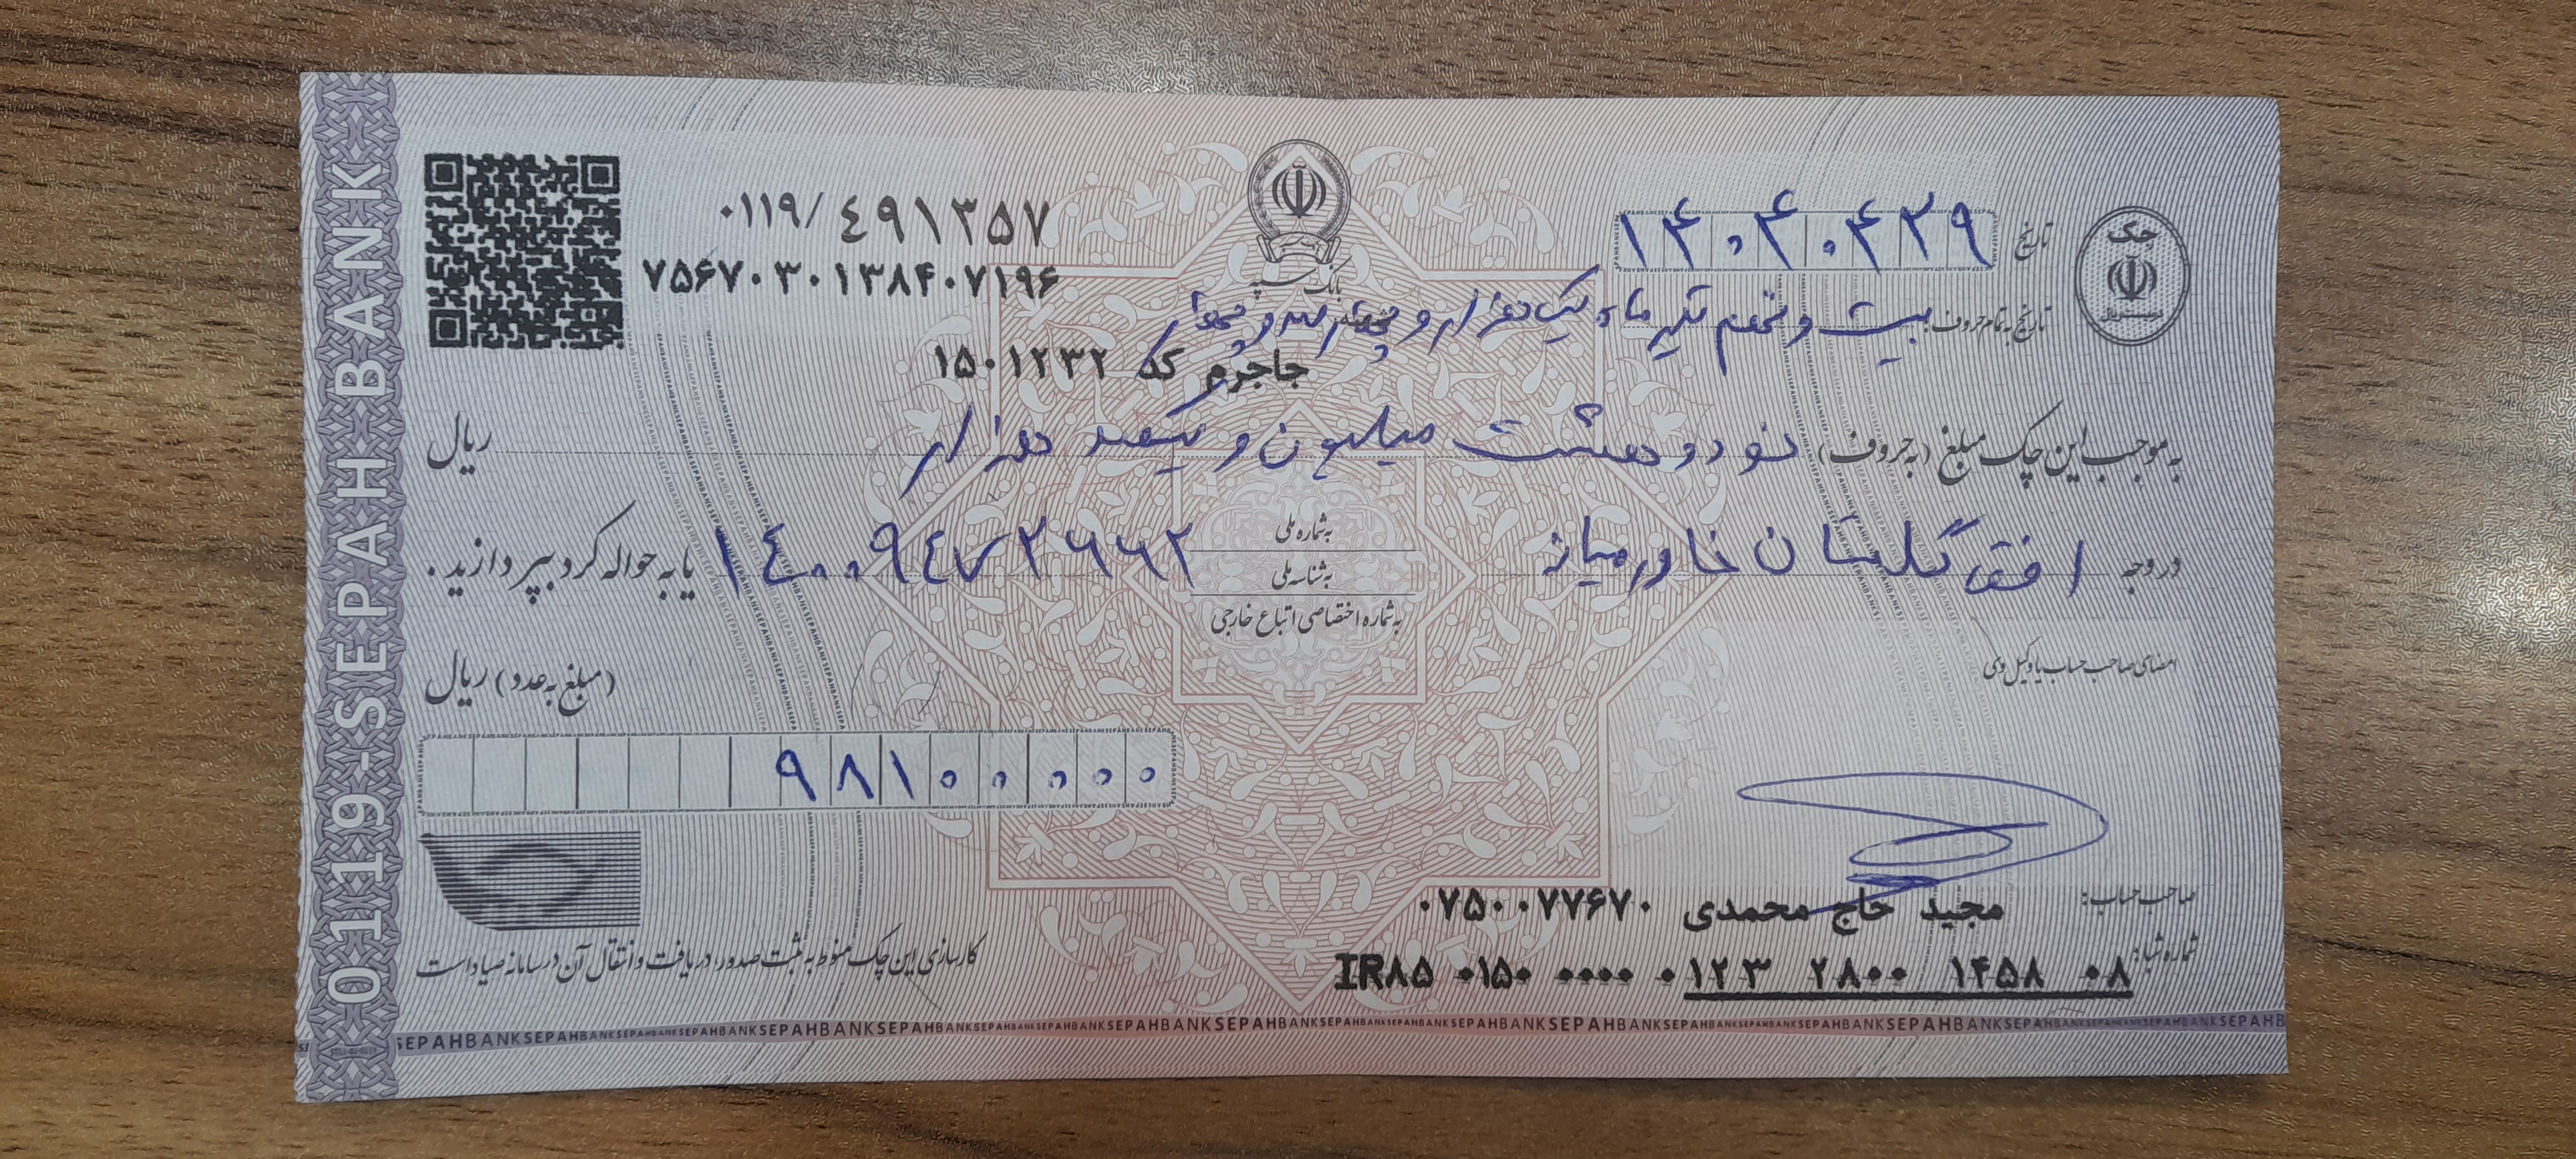 0119-SEPAH BANK
۰۱۱۹/ ٤۹۱۳۵۷
۷۵۶۷۰۳۰۱۳۸۴۰۷۱۹۶
بانک سپه
چک
تاریخ ۱۴۰۴۰۴۲۹
تاریخ به تمام حروف: بیست و نهم تیر ماه یک هزار و چهارصد و چهار
جاجرم کد ۱۵۰۱۲۳۲
به موجب این چک مبلغ (به حروف) نود و هشت میلیون و یکصد هزار ریال
در وجه افق گلستان خاورمیانه به شماره ملی ۱٤۰۰۹٤۷۲۶۶۲ یا به حواله کرد بپردازید.
به شناسه ملی
به شماره اختصاصی اتباع خارجی
امضای صاحب حساب یا وکیل وی
(مبلغ به عدد) ریال
۹۸۱۰۰۰۰۰
صاحب حساب: مجید حاج محمدی ۰۷۵۰۰۷۷۶۷۰
شماره شبا: IR۸۵ ۰۱۵۰ ۰۰۰۰ ۰۱۲۳ ۲۸۰۰ ۱۴۵۸ ۰۸
کارسازی این چک منوط به ثبت صدور، دریافت و انتقال آن در سامانه صیاد است
SEPAHBANKSEPAHBANKSEPAHBANKSEPAHBANK